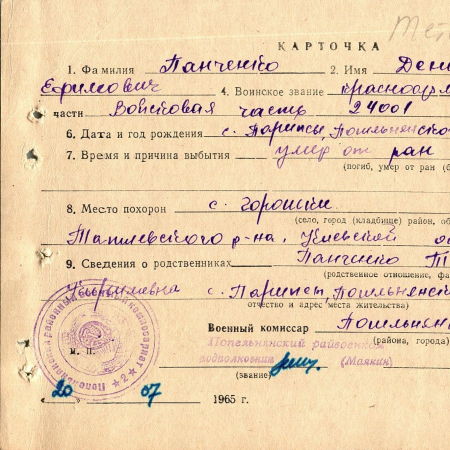 КАРТОЧКА
1. Фамилия Панченко 2. Имя Дени
Ефимович 4. Воинское звание красноарм
части Войсковая часть 24001
6. Дата и год рождения с. Парипсы, Попельнянско
7. Время и причина выбытия умер от ран
(погиб, умер от ран (б
8. Место похорон с. Горошки
(село, город (кладбище) район, об
р-на, Киевской об
9. Сведения о родственниках Панченко
(родственное отношение, фа
с. Парипсы, Попельнянс
отчество и адрес места жительства)
Военный комиссар Попельнян
(района, города)
Попельнянский райвоенком
подполковник (Маякин)
(звание)
М. П.
20 07 1965 г.